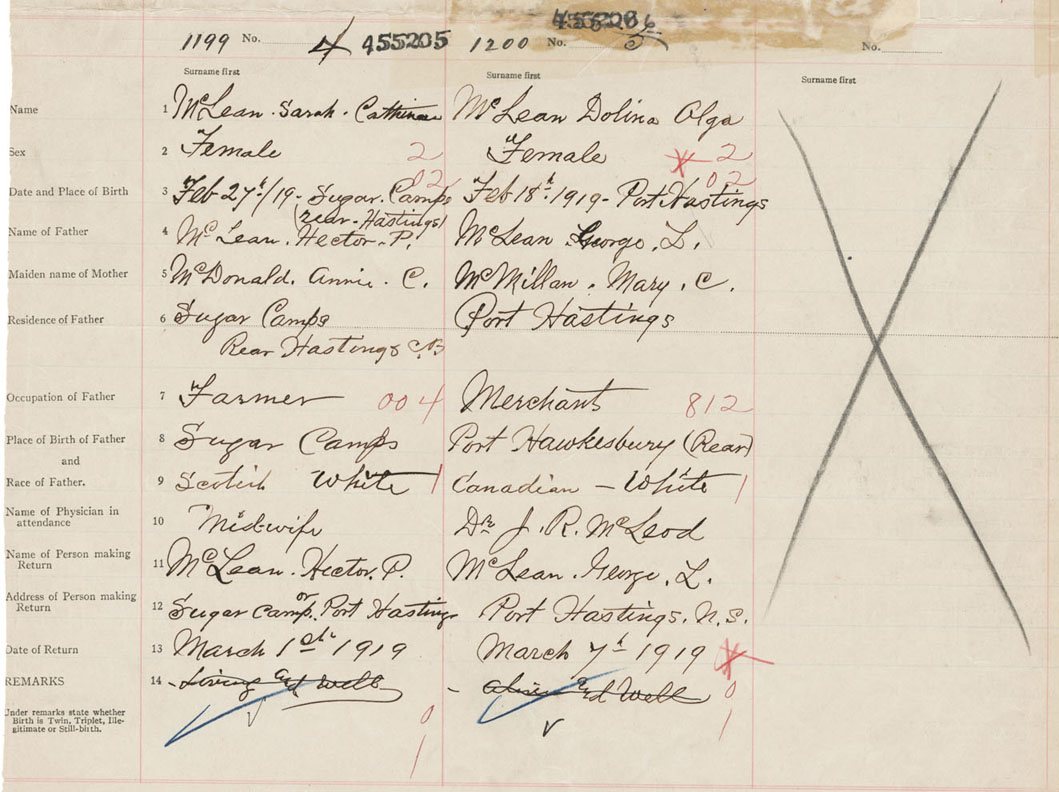 1199 No. 4 455205 1200 No. 5 No.
Surname first Surname first Surname first
Name 1 McLean Sarah Catherine McLean Dolina Olga
Sex 2 Female 2 Female 2
02 02
Date and Place of Birth 3 Feb 27th/19 - Sugar Camps Feb 18th 1919 - Port Hastings
(rear Hastings)
Name of Father 4 McLean. Hector. P. McLean George. L.
Maiden name of Mother 5 McDonald. Annie. C. McMillan. Mary. C.
Residence of Father 6 Sugar Camps Port Hastings
Rear Hastings C.B
Occupation of Father 7 Farmer 004 Merchant 812
Place of Birth of Father 8 Sugar Camps Port Hawkesbury (Rear)
and
Race of Father. 9 Scotish White 1 Canadian - White 1
Name of Physician in
attendance 10 Midwife Dr. J. R. McLeod
Name of Person making
Return 11 McLean. Hector. P. McLean. George. L.
Address of Person making
Return 12 Sugar Camp or Port Hastings Port Hastings. N.S.
Date of Return 13 March 1st 1919 March 7th 1919
REMARKS 14 - Living and Well - Alive and Well 0
Under remarks state whether
Birth is Twin, Triplet, Ille-
gitimate or Still-birth. 0 1
1